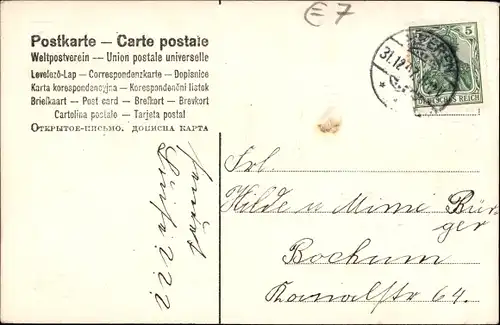 E7
Postkarte — Carte postale
Weltpostverein — Union postale universelle
Levelező-Lap — Correspondenzkarte — Dopisnice
Karta korespondencyjna — Korespondenční listek
Briefkaart — Post card — Brefkort — Brevkort
Cartolina postale — Tarjeta postal
Открытое-письмо. дописна карта
5
31.12
DEUTSCHES REICH
1
Frl.
Hilde u Mimi Bür-
ger
Bochum
Kanalstr 64.